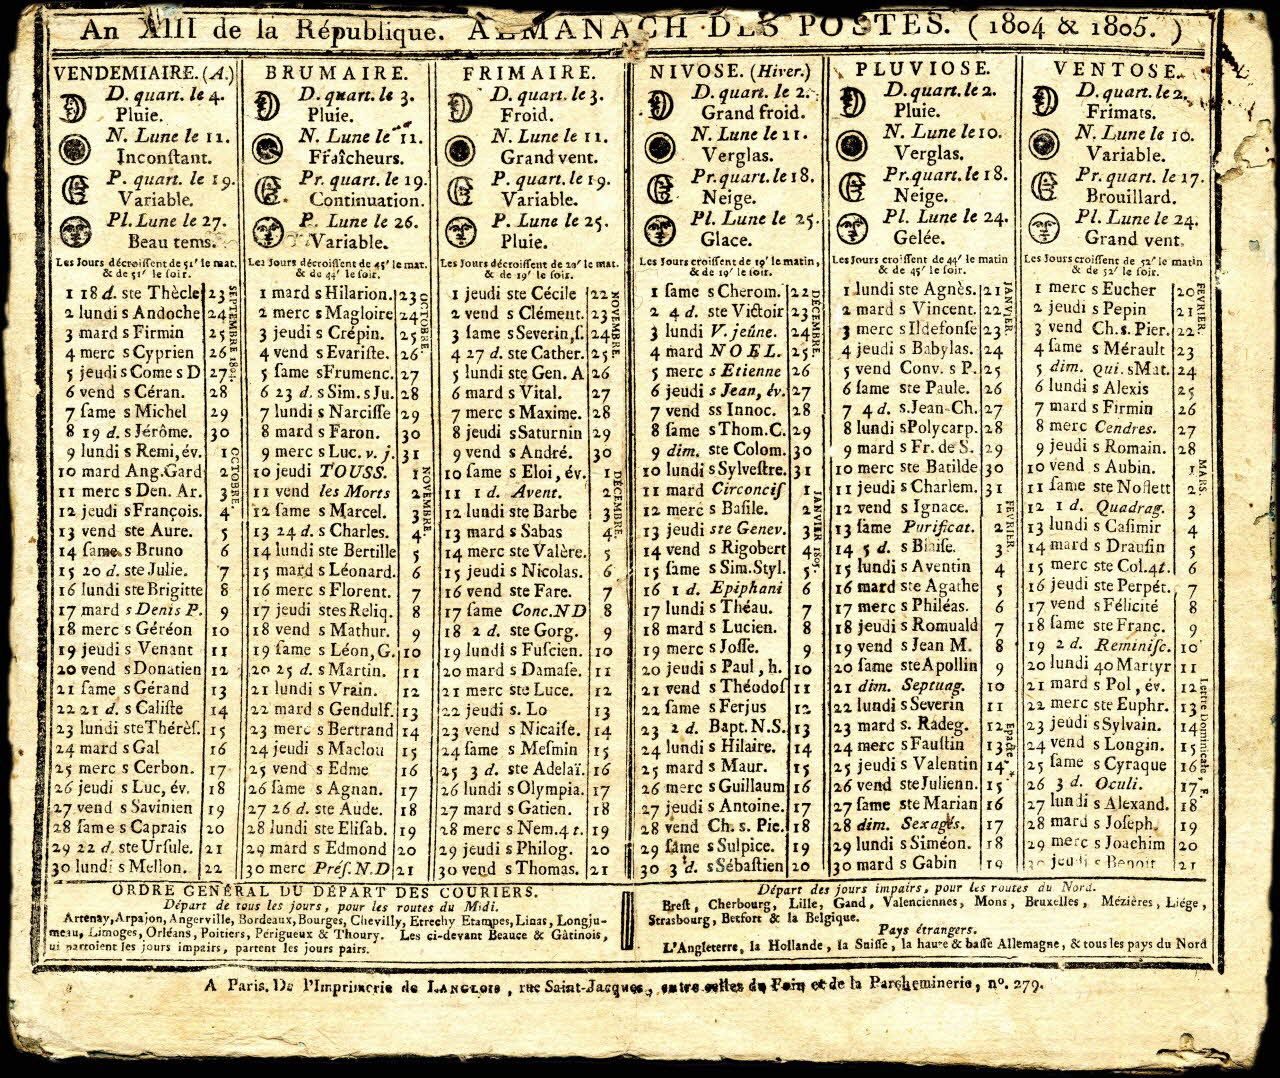 An XIII de la République. ALMANACH DES POSTES. (1804 & 1805.)
VENDEMIAIRE. (A.)
D. quart. le 4.
Pluie.
N. Lune le 11.
Inconſtant.
P. quart. le 19.
Variable.
Pl. Lune le 27.
Beau tems.
Les Jours décroiſſent de 51' le mat.
& de 51' le ſoir.
1 18 d. ste Thècle 23
2 lundi s Andoche 24
3 mard s Firmin 25
4 merc s Cyprien 26
5 jeudi s Come s D 27
6 vend s Céran. 28
7 ſame s Michel 29
8 19 d. s Jérôme. 30
9 lundi s Remi, év. 1
10 mard Ang. Gard 2
11 merc s Den. Ar. 3
12 jeudi s François. 4
13 vend ste Aure. 5
14 ſame s Bruno 6
15 20 d. ste Julie. 7
16 lundi ste Brigitte 8
17 mard s Denis P. 9
18 merc s Géréon 10
19 jeudi s Venant 11
20 vend s Donatien 12
21 ſame s Gérand 13
22 21 d. s Caliſte 14
23 lundi ste Thérèſ. 15
24 mard s Gal 16
25 merc s Cerbon. 17
26 jeudi s Luc, év. 18
27 vend s Savinien 19
28 ſame s Caprais 20
29 22 d. ste Urſule. 21
30 lundi s Mellon. 22
SEPTEMBRE 1804.
OCTOBRE.
BRUMAIRE.
D. quart. le 3.
Pluie.
N. Lune le 11.
Fraîcheurs.
Pr. quart. le 19.
Continuation.
P. Lune le 26.
Variable.
Les Jours décroiſſent de 45' le mat.
& de 44' le ſoir.
1 mard s Hilarion. 23
2 merc s Magloire 24
3 jeudi s Crépin. 25
4 vend s Evariſte. 26
5 ſame s Frumenc. 27
6 23 d. s Sim. s Ju. 28
7 lundi s Narciſſe 29
8 mard s Faron. 30
9 merc s Luc. v. j. 31
10 jeudi TOUSS. 1
11 vend les Morts 2
12 ſame s Marcel. 3
13 24 d. s Charles. 4
14 lundi ste Bertille 5
15 mard s Léonard. 6
16 merc s Florent. 7
17 jeudi stes Reliq. 8
18 vend s Mathur. 9
19 ſame s Léon, G. 10
20 25 d. s Martin. 11
21 lundi s Vrain. 12
22 mard s Gendulf. 13
23 merc s Bertrand 14
24 jeudi s Maclou 15
25 vend s Edme 16
26 ſame s Agnan. 17
27 26 d. ste Aude. 18
28 lundi ste Eliſab. 19
29 mard s Edmond 20
30 merc Préſ. N.D 21
OCTOBRE.
NOVEMBRE.
FRIMAIRE.
D. quart. le 3.
Froid.
N. Lune le 11.
Grand vent.
P. quart. le 19.
Variable.
P. Lune le 25.
Pluie.
Les Jours décroiſſent de 20' le mat.
& de 19' le ſoir.
1 jeudi ste Cécile 22
2 vend s Clément. 23
3 ſame s Severin, ſ. 24
4 27 d. ste Cather. 25
5 lundi ste Gen. A 26
6 mard s Vital. 27
7 merc s Maxime. 28
8 jeudi s Saturnin 29
9 vend s André. 30
10 ſame s Eloi, év. 1
11 1 d. Avent. 2
12 lundi ste Barbe 3
13 mard s Sabas 4
14 merc ste Valère. 5
15 jeudi s Nicolas. 6
16 vend ste Fare. 7
17 ſame Conc. ND 8
18 2 d. ste Gorg. 9
19 lundi s Fuſcien. 10
20 mard s Damaſe. 11
21 merc ste Luce. 12
22 jeudi s. Lo 13
23 vend s Nicaiſe. 14
24 ſame s Meſmin 15
25 3 d. ste Adelaï. 16
26 lundi s Olympia. 17
27 mard s Gatien. 18
28 merc s Nem. 4 t. 19
29 jeudi s Philog. 20
30 vend s Thomas. 21
NOVEMBRE.
DÉCEMBRE.
NIVOSE. (Hiver.)
D. quart. le 2.
Grand froid.
N. Lune le 11.
Verglas.
Pr. quart. le 18.
Neige.
Pl. Lune le 25.
Glace.
Les Jours croiſſent de 19' le matin,
& de 19' le ſoir.
1 ſame s Cherom. 22
2 4 d. ste Victoir 23
3 lundi V. jeûne. 24
4 mard NOEL. 25
5 merc s Etienne 26
6 jeudi s Jean, év. 27
7 vend ss Innoc. 28
8 ſame s Thom. C. 29
9 dim. ste Colom. 30
10 lundi s Sylveſtre. 31
11 mard Circonciſ 1
12 merc s Baſile. 2
13 jeudi ste Genev. 3
14 vend s Rigobert 4
15 ſame s Sim. Styl. 5
16 1 d. Epiphani 6
17 lundi s Théau. 7
18 mard s Lucien. 8
19 merc s Joſſe. 9
20 jeudi s Paul, h. 10
21 vend s Théodoſ 11
22 ſame s Ferjus 12
23 2 d. Bapt. N.S. 13
24 lundi s Hilaire. 14
25 mard s Maur. 15
26 merc s Guillaum 16
27 jeudi s Antoine. 17
28 vend Ch. s. Pie. 18
29 ſame s Sulpice. 19
30 3 d. s Sébaſtien 20
DÉCEMBRE.
JANVIER 1805.
PLUVIOSE.
D. quart. le 2.
Pluie.
N. Lune le 10.
Verglas.
Pr. quart. le 18.
Neige.
Pl. Lune le 24.
Gelée.
Les Jours croiſſent de 44' le matin
& de 45' le ſoir.
1 lundi ste Agnès. 21
2 mard s Vincent. 22
3 merc s Ildefonſe 23
4 jeudi s Babylas. 24
5 vend Conv. s P. 25
6 ſame ste Paule. 26
7 4 d. s. Jean-Ch. 27
8 lundi s Polycarp. 28
9 mard s Fr. de S. 29
10 merc ste Batilde 30
11 jeudi s Charlem. 31
12 vend s Ignace. 1
13 ſame Purificat. 2
14 5 d. s Blaiſe. 3
15 lundi s Aventin 4
16 mard ste Agathe 5
17 merc s Philéas. 6
18 jeudi s Romuald 7
19 vend s Jean M. 8
20 ſame ste Apollin 9
21 dim. Septuag. 10
22 lundi s Severin 11
23 mard s. Radeg. 12
24 merc s Fauſtin 13
25 jeudi s Valentin 14
26 vend ste Julienn. 15
27 ſame ste Marian 16
28 dim. Sexagéſ. 17
29 lundi s Siméon. 18
30 mard s Gabin 19
JANVIER.
FÉVRIER.
Epacte. *
VENTOSE.
D. quart. le 2.
Frimats.
N. Lune le 10.
Variable.
Pr. quart. le 17.
Brouillard.
Pl. Lune le 24.
Grand vent.
Les Jours croiſſent de 52' le matin
& de 52' le ſoir.
1 merc s Eucher 20
2 jeudi s Pepin 21
3 vend Ch. s. Pier. 22
4 ſame s Mérault 23
5 dim. qui. s Mat. 24
6 lundi s Alexis 25
7 mard s Firmin 26
8 merc Cendres. 27
9 jeudi s Romain. 28
10 vend s Aubin. 1
11 ſame ste Noſlett 2
12 1 d. Quadrag. 3
13 lundi s Caſimir 4
14 mard s Drauſin 5
15 merc ste Col. 4t. 6
16 jeudi ste Perpét. 7
17 vend s Félicité 8
18 ſame ste Franç. 9
19 2 d. Reminiſc. 10
20 lundi 40 Martyr 11
21 mard s Pol, év. 12
22 merc ste Euphr. 13
23 jeudi s Sylvain. 14
24 vend s Longin. 15
25 ſame s Cyraque 16
26 3 d. Oculi. 17
27 lundi s Alexand. 18
28 mard s Joſeph. 19
29 merc s Joachim 20
30 jeudi s Benoit 21
FÉVRIER.
MARS.
Lettre Dominicale F.
ORDRE GENÉRAL DU DÉPART DES COURIERS.
Départ de tous les jours, pour les routes du Midi.
Artenay, Arpajon, Angerville, Bordeaux, Bourges, Chevilly, Etrechy Etampes, Linas, Longju-
meau, Limoges, Orléans, Poitiers, Périgueux & Thoury. Les ci-devant Beauce & Gâtinois,
ui partoient les jours impairs, partent les jours pairs.
Départ des jours impairs, pour les routes du Nord.
Breſt, Cherbourg, Lille, Gand, Valenciennes, Mons, Bruxelles, Mézières, Liége,
Strasbourg, Betfort & la Belgique.
Pays étrangers.
L'Angleterre, la Hollande, la Suiſſe, la haute & baſſe Allemagne, & tous les pays du Nord
A Paris. De l'Imprimerie de LANGLOIS, rue Saint-Jacques, entre celles du Foin et de la Parcheminerie, n°. 279.